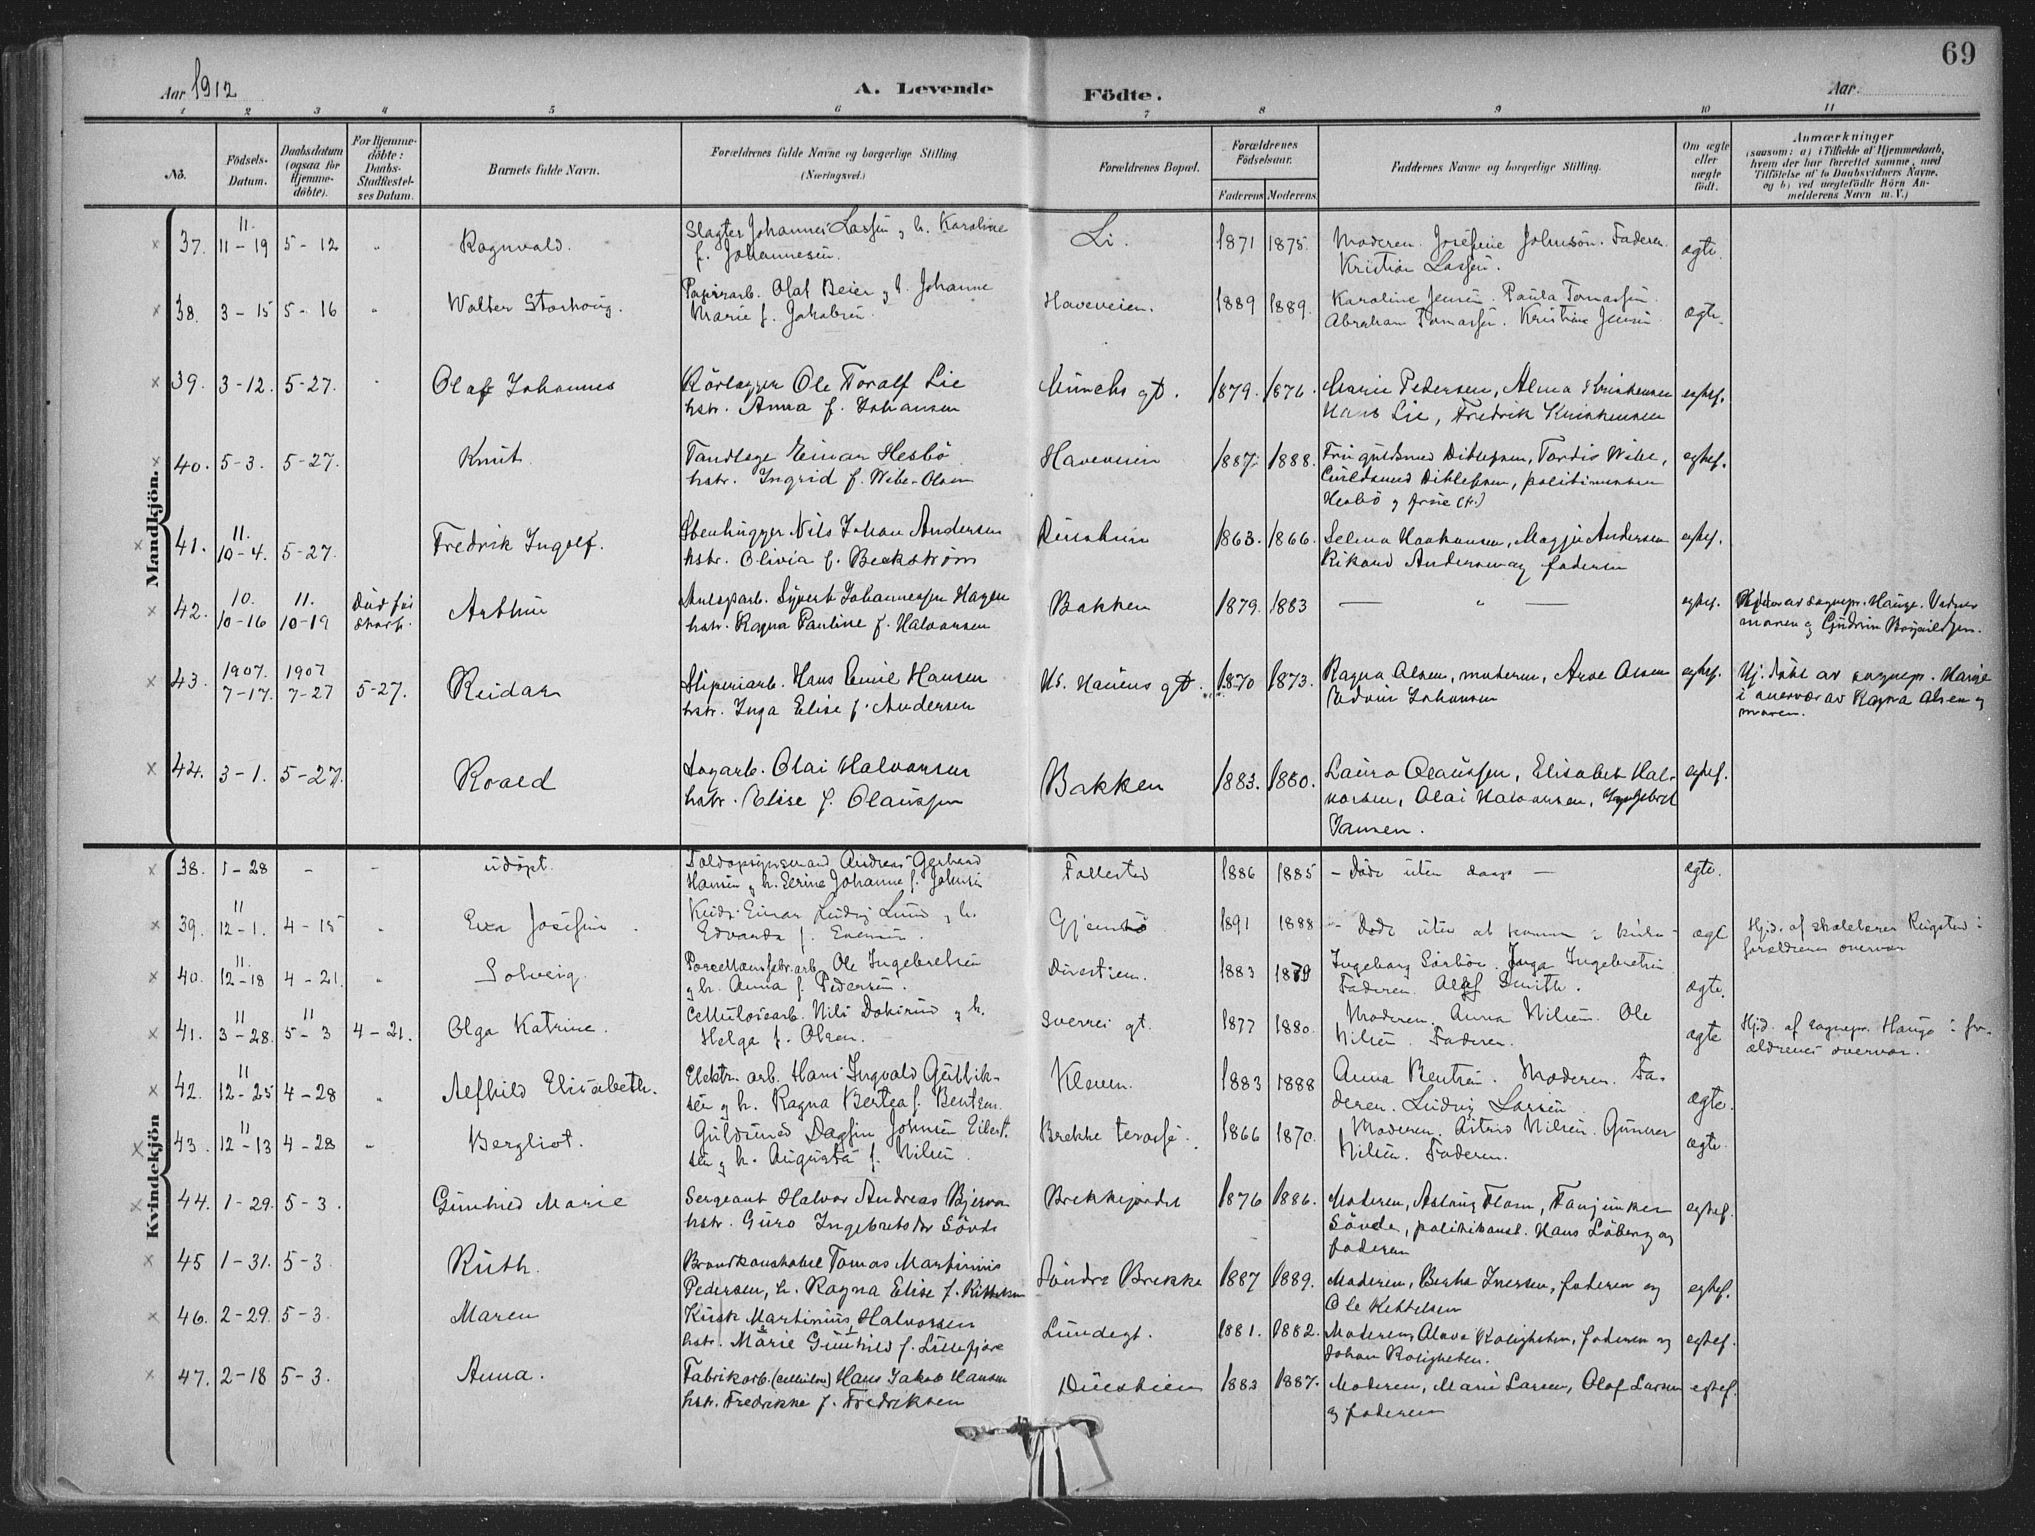 69
Aar 1912
A. Levende Födte.
Aar.
1 2 3 4 5 6 7 8 9 10 11
No.
Födsels-Datum.
Daabsdatum (ogsaa for Hjemmedöbte).
For Hjemmedöbte: Daabs-Stadfæstelses Datum.
Barnets fulde Navn.
Forældrenes fulde Navne og borgerlige Stilling (Næringsvei.)
Forældrenes Bopæl.
Forældrenes Födselsaar.
Faderens Moderens
Faddernes Navne og borgerlige Stilling.
Om ægte eller uægte födt.
Anmærkninger
(saasom: a) i Tilfælde af Hjemmedaab, hvem der har forrettet samme, med Tilföielse af to Daabsvidners Navne, og b) ved uægtefödte Börn Anmelderens Navn m. V.)
Mandkjön.
37. 11. 11-19 5-12 " Ragnvald. Slagter Johannes Lassen g h. Karoline Li. 1871 1875. Moderen. Josefine Johnsön. Faderen. ægte.
f. Johannesen. Kristian Lassen.
38. 3-15 5-16 " Walter Storhoug. Papirarb. Olaf Beier g h. Johanne Haveveien. 1889 1889. Karoline Jensen. Paula Tomassen. ægte.
Marie f. Jakobsen. Abraham Tomassen. Kristian Jensen
39. 3-12. 5-27. " Olaf Johannes Rörlegger Ole Toralf Lie Munchs gt. 1879. 1876. Marie Pedersen, Alma Kristensen egtef.
hstr. Anna f. Johansen Hans Lie, Fredrik Kristensen
40. 5-3. 5-27. Knut. Tandlege Einar Hesbö Haveveien 1887. 1888. Ditlefsen, Tordis Wibe, egtef.
hstr. Ingrid f. Wibe-Olsen Guldsmed Ditlefsen,
Hesbö g
41. 11. 10-4. 5-27. Fredrik Ingolf. Stenhugger Nils Johan Andersen Duestien 1863. 1866. Selma Haakonsen, Magja Andersen egtef.
hstr. Olivia f. Beckström Rikard Andersen og faderen
42. 10. 10-16 11. 10-19 Död för Arthur Anlegsarb. Syvert Johannessen Hagen Bakken 1879. 1883 — " — egtef. av sognepr. Hauge.
hstr. Ragna Pauline f. Halvorsen moren g Gudrun
43. 1907. 7-17. 1907 7-27 5-27. Reidar Sliperiarb. Hans Emil Hansen Hs. Hauens gt. 1870 1873. Ragna Olsen, moderen, Arve Olsen egtef. Hj. döbt av sognepr. Hauge
hstr. Inga Elise f. Andersen Edvin Johansen i nærvær av Ragna Olsen og
moren.
44. 3-1. 5-27. Roald Sagarb. Olai Halvorsen Bakken 1883. 1880. Laura Olaussen, Elisabet Hal- egtef.
hstr. Elise f. Olaussen vorsen, Olai Halvorsen, Ingebret
Jansen.
Kvindekjön
38. 1-28 - - udöpt. Toldopsynsmand Andreas Gerhard Follestad 1886 1885 - Döde uten daap - ægte.
Hansen g h. Elrine Johanne f. Johnsen
39. 11 12-1. 4-15 " Eva Josefine. Kudsk Einar Ludvig Lund g h. Gjemsö 1891 1888 - Döde uten at komme i kirke - ægte Hjd. af skolelærer Ringstad i
Edvarda f. Evensen. forældrenes overvær
40. 11 12-18 4-21. " Solveig. Porcellansfabr.arb. Ole Ingebretsen Duestien. 1883 1879 Ingeborg Sörböe. Inga Ingebretsen ægte.
g h. Anna f. Pedersen. Faderen. Olaf Smith.
41. 11 3-28. 11 5-3 4-21. Olga Katrine. Cellulosearb. Nils g h. Sverres gt. 1877 1880. Moderen. Anna Nilsen. Ole ægte Hjd. af sognepr. Hauge i for-
Helga f. Olsen. Nilsen. Faderen. ældrenes overvær.
42. 11 12-25 4-28 " Alfhild Elisabeth. Elektr. arb. Hans Ingvald Gullik- Kleven. 1883 1888 Anna Bentsen. Moderen. Fa- ægte.
sen g h. Ragna Bertea f. Bentsen. deren. Ludvig Larsen
43. 11 12-13 4-28 " Bergliot. Guldsmed Dagfin Johnsen Eilert- Brekke terasse. 1866 1870. Moderen. Astrid Nilsen. Gunnar ægte.
sen g h. Augusta f. Nilsen. Nilsen. Faderen.
44. 1-29. 5-3. Gunhild Marie Sergeant Halvor Andreas Bjerva Brekkejordet 1876 1886. Moderen, Aslaug Flom, Fanejunker egtef.
hstr. Guro Ingebretsdtr Sövde Sövde, politikonst. Hans Löberg og
faderen
45 1-31. 5-3. Ruth. Brandkonstabel Tomas Martinius Söndre Brekke 1887 1889. Moderen, Berta Iversen, faderen og egtef.
Pedersen, h. Ragna Elise f. Kittelsen Ole Kittelsen
46. 2-29. 5-3. Maren Kusk Martinius Halvorsen Lundegt. 1881. 1882. Moderen, Olava Roligheten, faderen og egtef.
hstr. Maren Gunhild f. Lillefjære Johan Roligheten.
47. 2-18 5-3. Anna. Fabrikarb. (cellulose) Hans Jakob Hansen Duestien 1883 1887. Moderen, Marie Larsen, Olaf Larsen egtef.
hstr. Fredrikke f. Fredriksen og faderen